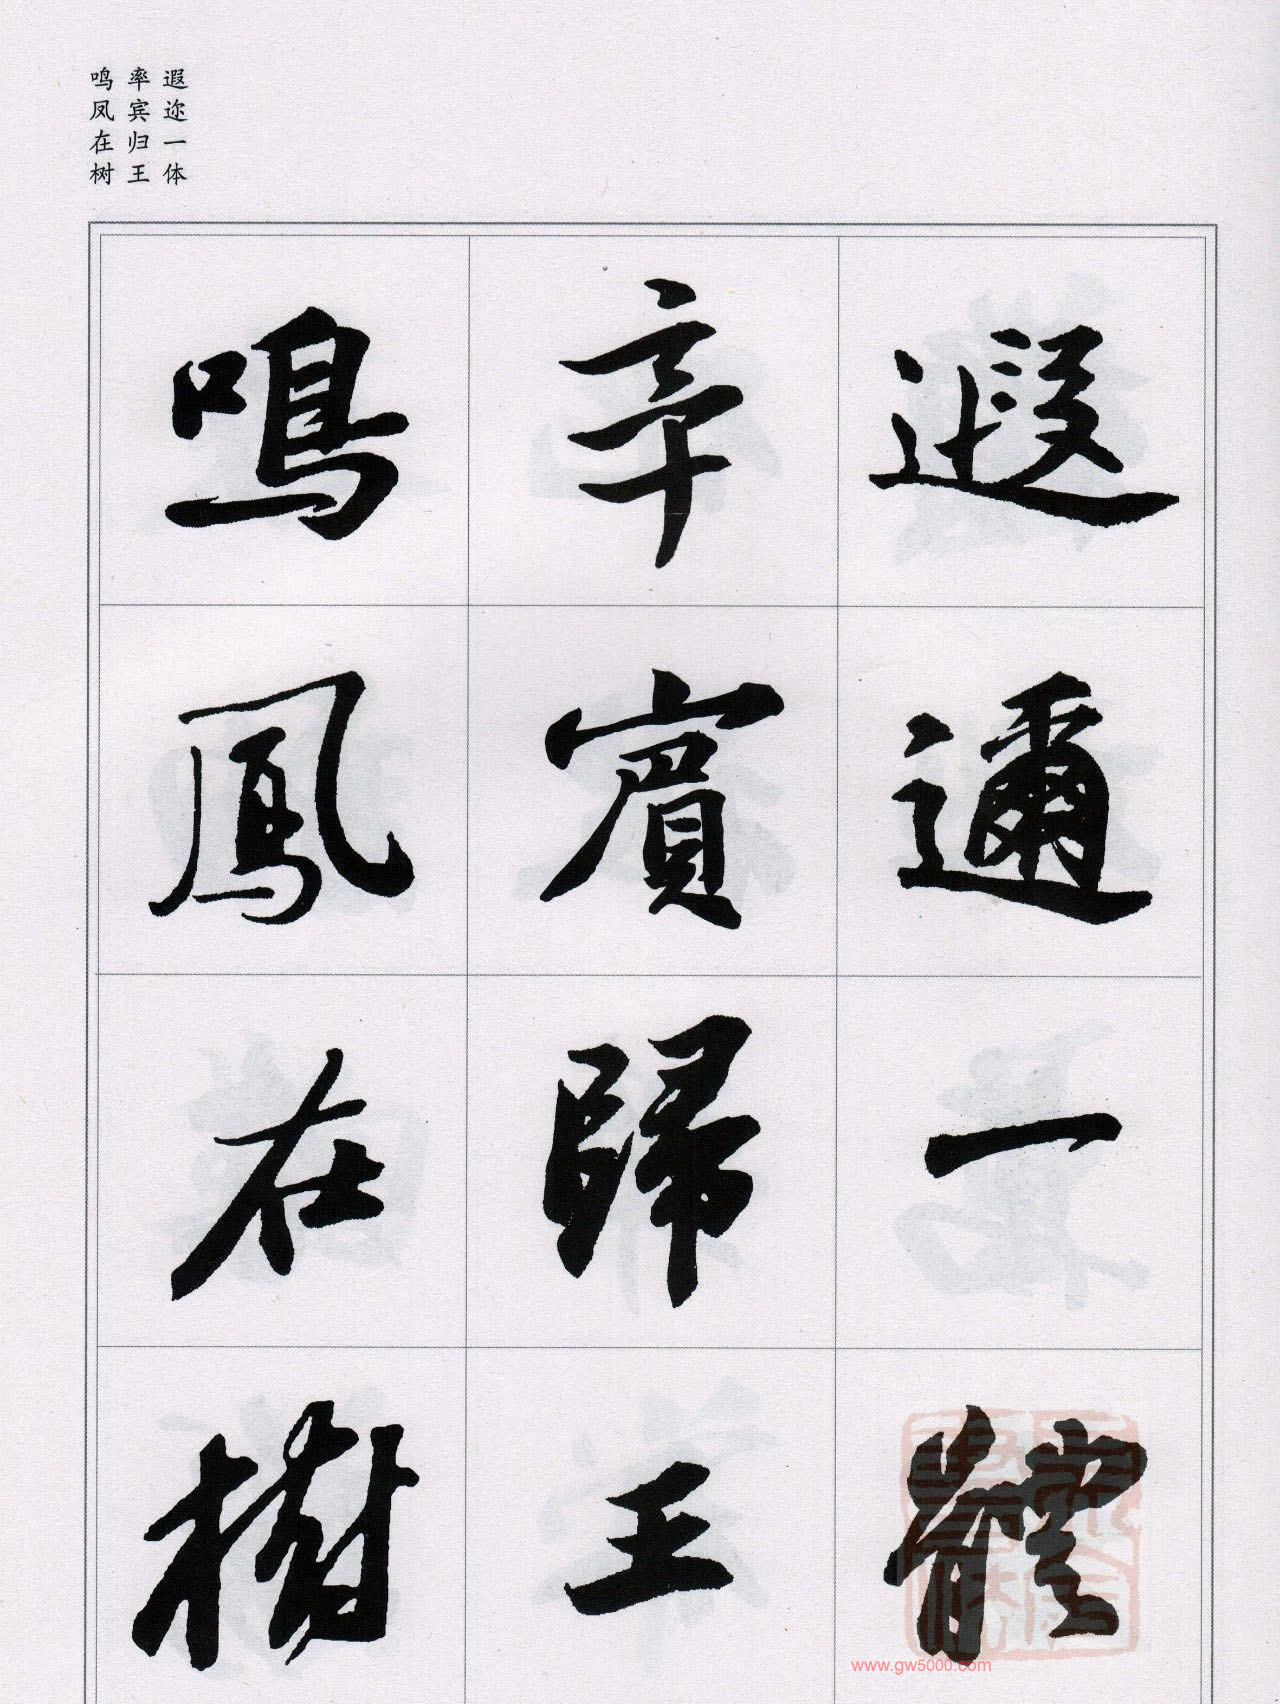 遐迩一体
率宾归王
鸣凤在树
遐邇一體
率賓歸王
鳴鳳在樹
www.gw5000.com